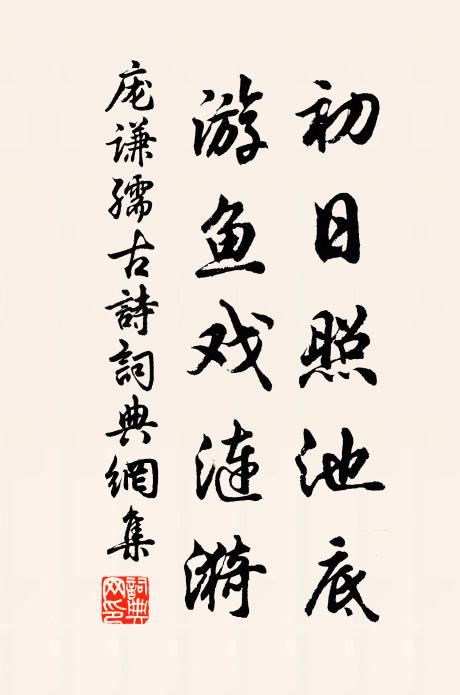 初日照池底
游鱼戏涟漪
庞谦孺古詩詞典網集